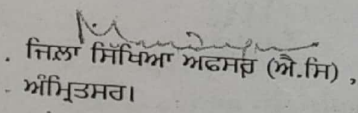 ਜਿਲਾ ਸਿੱਖਿਆ ਅਫਸਰ (ਐ.ਸਿ) ,
ਅੰਮ੍ਰਿਤਸਰ।